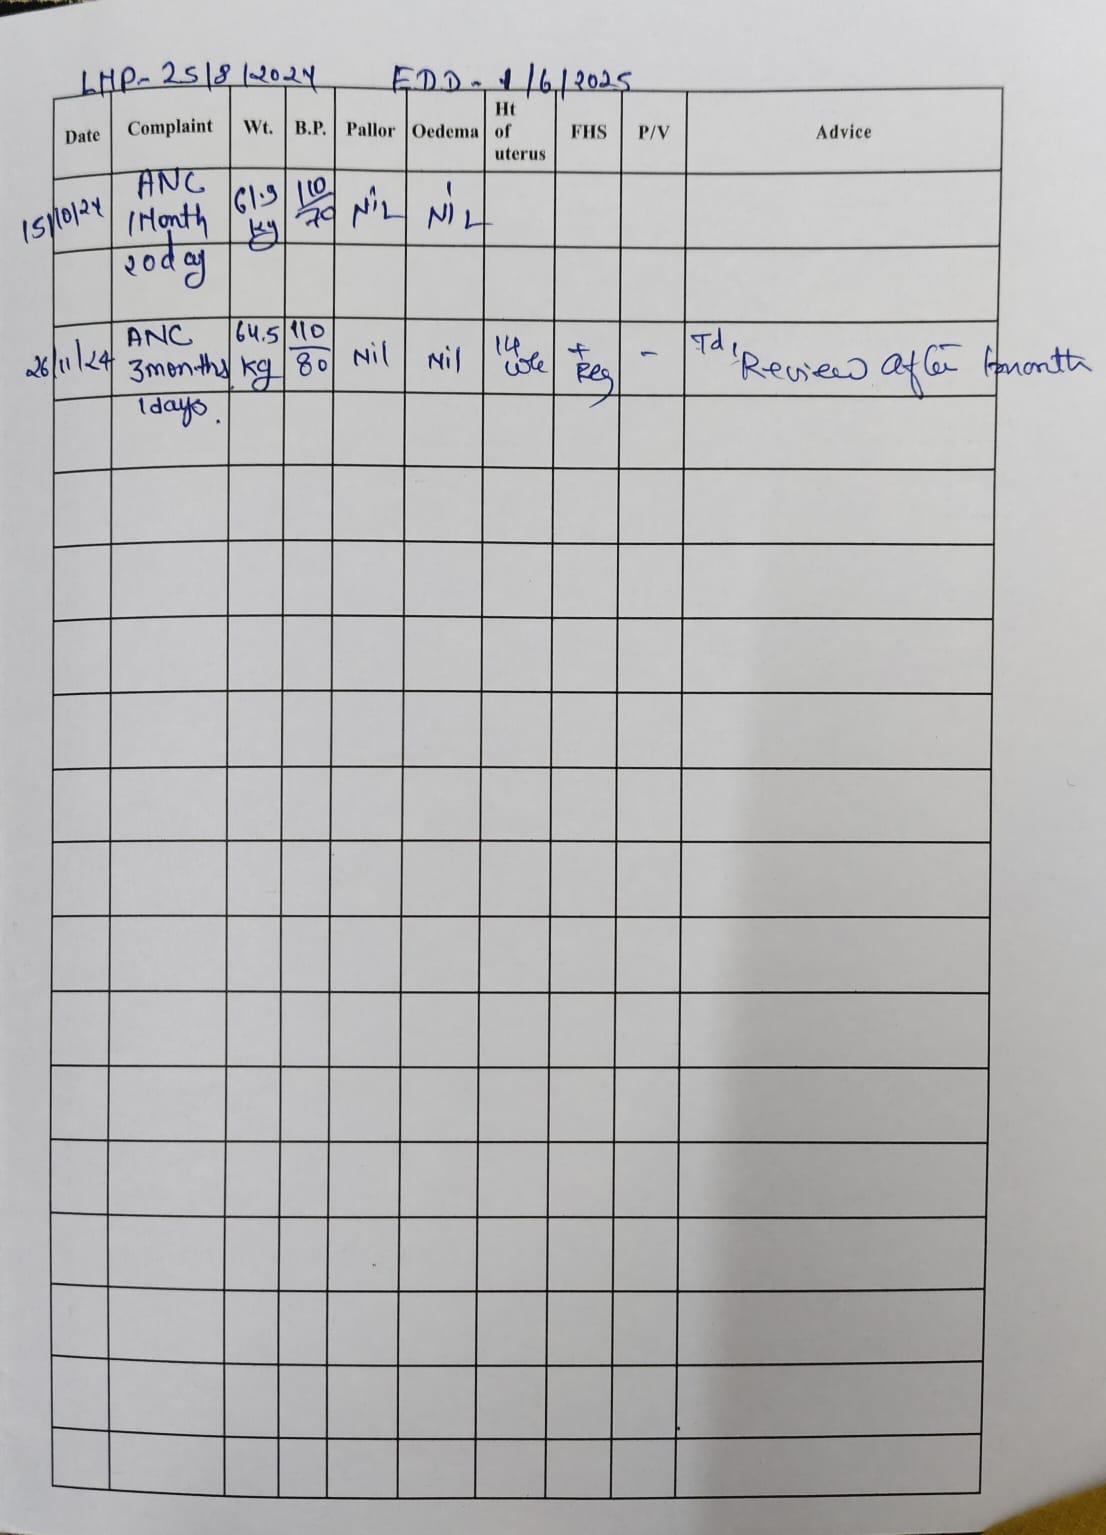 LMP- 25/8/2024 EDD- 1/6/2025
Date Complaint Wt. B.P. Pallor Oedema Ht of uterus FHS P/V Advice
15/10/24 ANC 1Month 20day 61.9 kg 110/70 NiL NiL
26/11/24 ANC 3months 1days. 64.5 kg 110/80 Nil Nil 14 + Reg - Td, Review after month